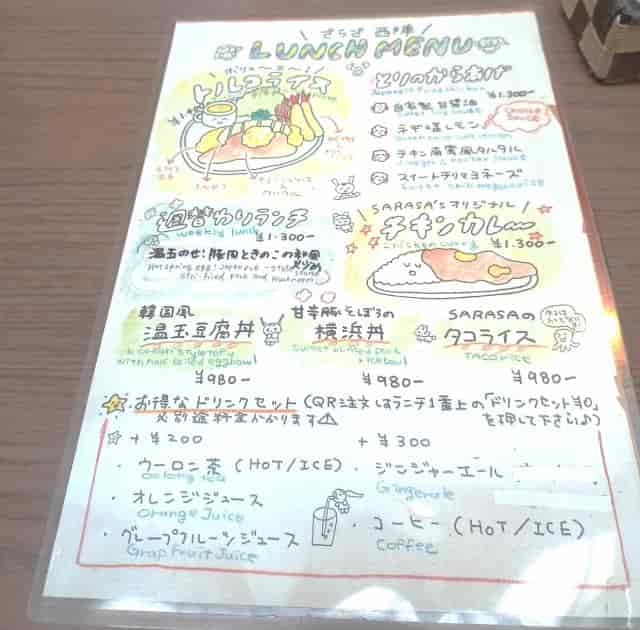 さらさ 西陣
LUNCH MENU
ボリューミー!
トルコライス
とりのからあげ
¥1.300-
自家製 甘醤油
CHOICE SAUCE
ネギ塩レモン
チキン南蛮風タルタル
スイートテリマヨネーズ
週替わりランチ
weekly lunch
¥1.300-
温玉のせ!豚肉ときのこの和風
Hot spring egg! Japanese-style
stir-fried pork and mushroom
SARASA'sオリジナル
チキンカレー
chicken curry ¥1.300-
韓国風
温玉豆腐丼
¥980-
甘辛豚そぼろの
横浜丼
¥980-
SARASAの
タコライス
TACO rice
¥980-
お得なドリンクセット(QR注文はランチ1番上の「ドリンクセット¥0」
※別途料金かかります⚠ を押して下さい♪)
☆ + ¥200
・ウーロン茶 (HOT/ICE)
Oolong tea
・オレンジジュース
Orange Juice
・グレープフルーツジュース
Grap Fruit Juice
+ ¥300
・ジンジャーエール
Gingerale
・コーヒー (HOT/ICE)
Coffee